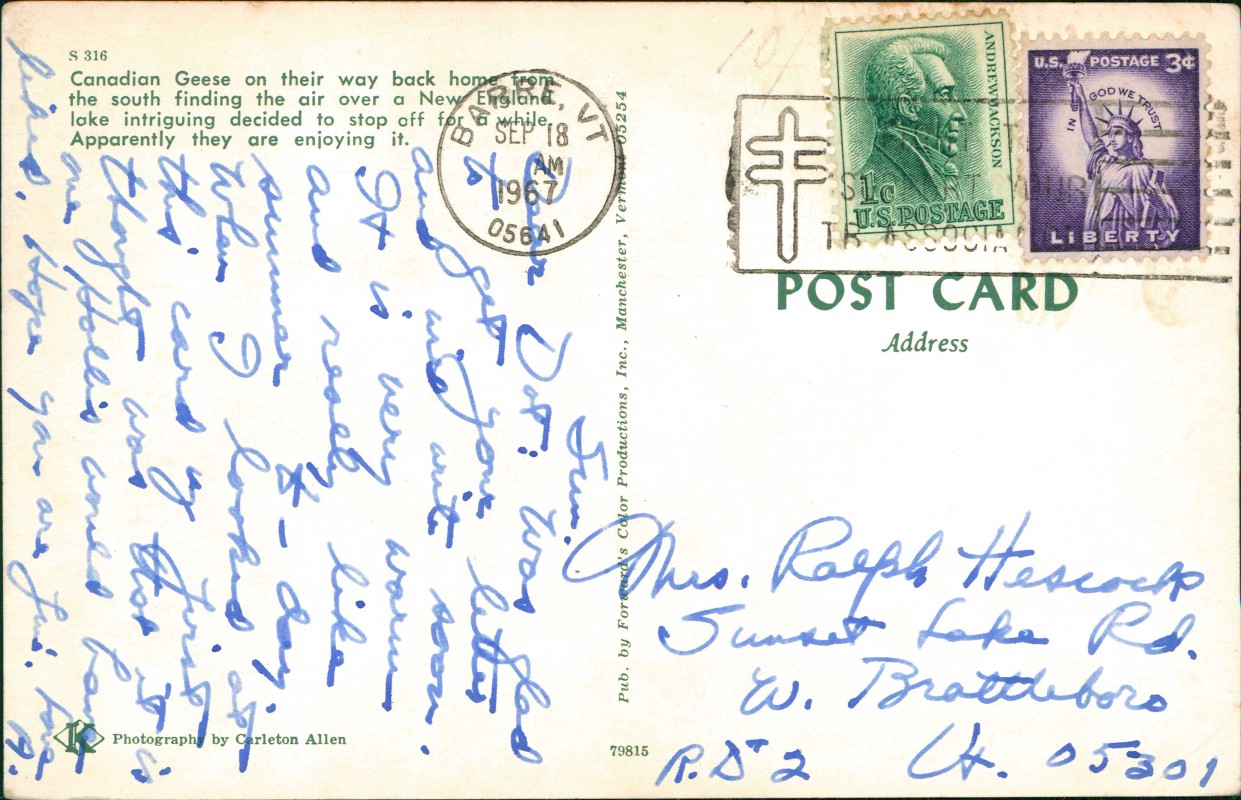 S 316
Canadian Geese on their way back home from
the south finding the air over a New England
lake intriguing decided to stop off for a while.
Apparently they are enjoying it.
BARRE, VT
SEP 18
AM
1967
05641
ANDREW JACKSON
1c
U.S. POSTAGE
U.S. POSTAGE 3¢
IN GOD WE TRUST
LIBERTY
YOUR
TB ASSOCIA
POST CARD
Address
Sun.
Dear Dot: Was glad
to get your letter
and will write soon.
It is very warm
and really like
summer to-day.
When I looked at
this card my first
thought was that it is
one Hollis would have
liked. Hope you are fine. Love
Pub. by Forward's Color Productions, Inc., Manchester, Vermont 05254
Mrs. Ralph Hescock
Sunset Lake Rd.
W. Brattleboro
R.D# 2 Vt. 05301
K
Photography by Carleton Allen
79815